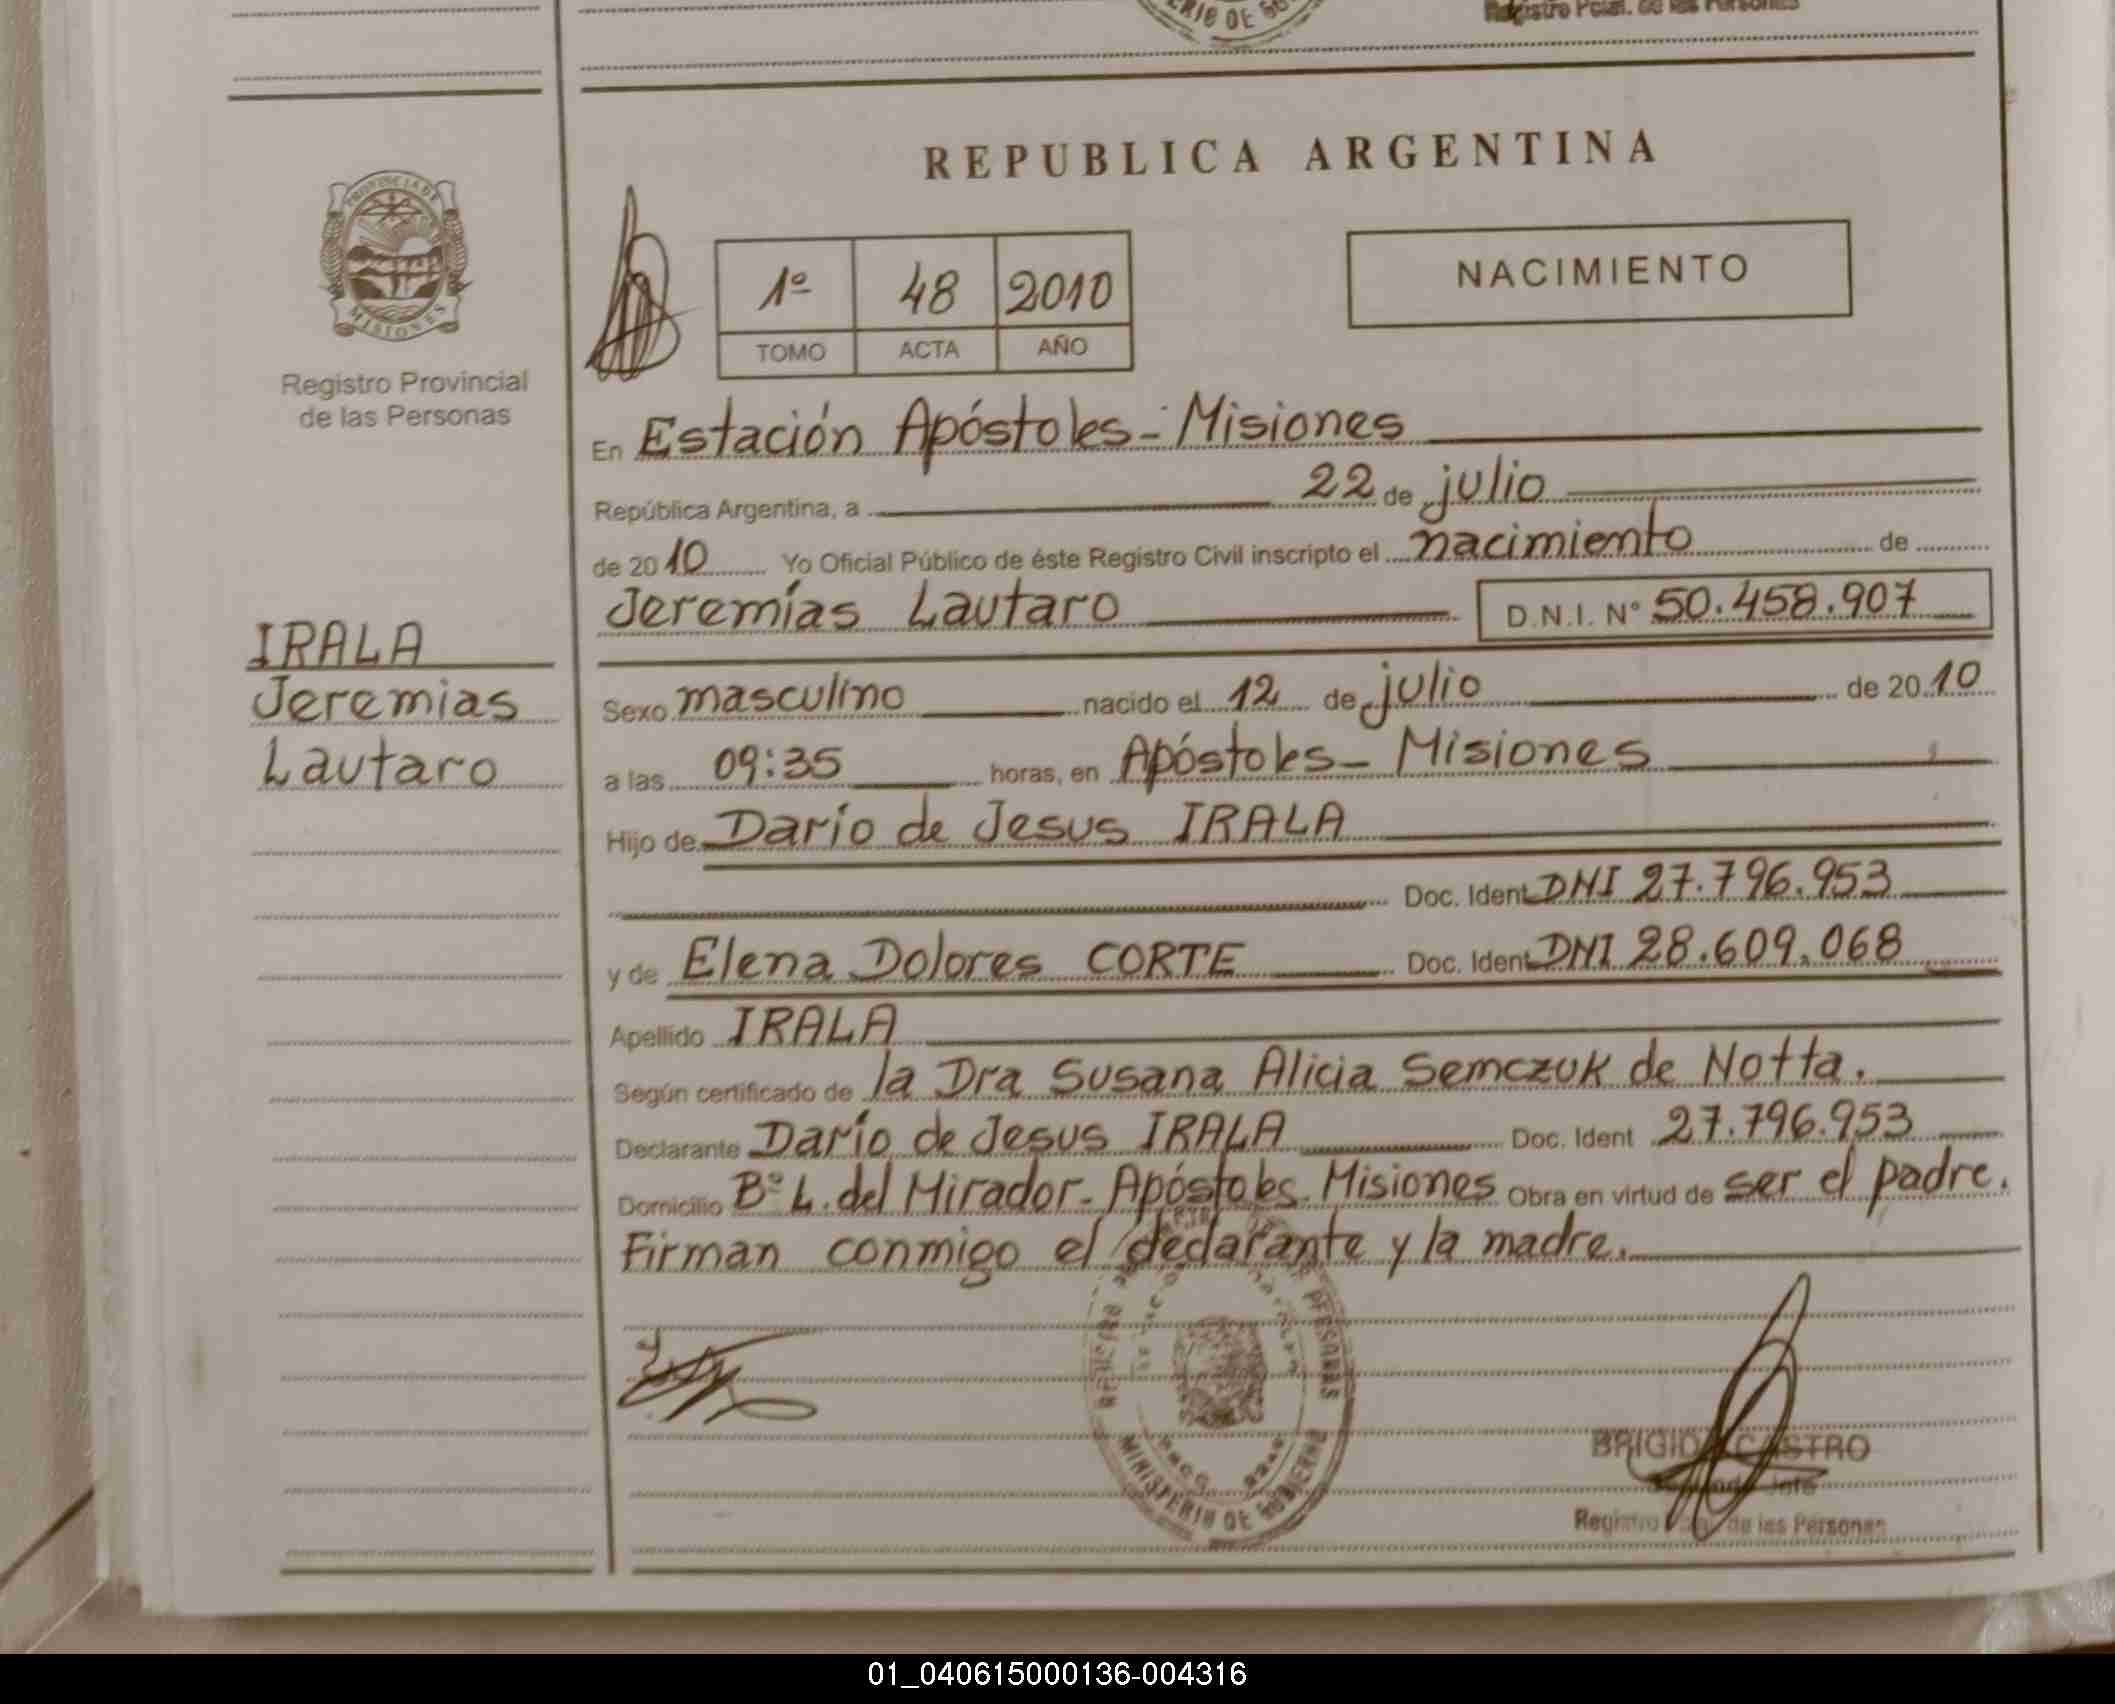 MINISTERIO DE GOBIERNO
Registro Pcial. de las Personas
REPUBLICA ARGENTINA
PROVINCIA DE
MISIONES
Registro Provincial
de las Personas
1º 48 2010
TOMO ACTA AÑO
NACIMIENTO
En Estación Apóstoles - Misiones
República Argentina, a 22 de julio
de 2010 Yo Oficial Público de éste Registro Civil inscripto el nacimiento de
Jeremías Lautaro D.N.I. N° 50.458.907
IRALA
Jeremias
Lautaro
Sexo masculino nacido el 12 de julio de 2010
a las 09:35 horas, en Apóstoles - Misiones
Hijo de Darío de Jesus IRALA
Doc. Ident DNI 27.796.953
y de Elena Dolores CORTE Doc. Ident DNI 28.609.068
Apellido IRALA
Según certificado de la Dra Susana Alicia Semczuk de Notta.
Declarante Darío de Jesus IRALA Doc. Ident 27.796.953
Domicilio Bº L. del Mirador - Apóstoles Misiones Obra en virtud de ser el padre.
Firman conmigo el declarante y la madre.
PERSONAS
MINISTERIO DE GOBIERNO
BRIGIDA CASTRO
Registro Pcial. de las Personas
01_040615000136-004316